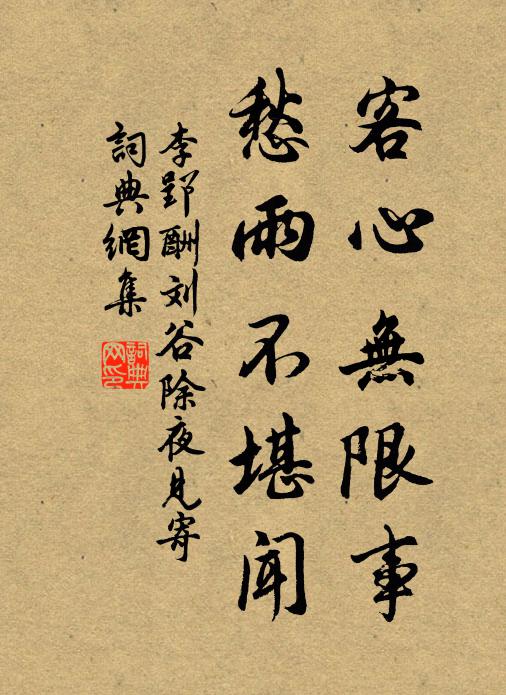 客心無限事
愁雨不堪聞
李郢酬刘谷除夜見寄
詞典網集
詞典
网印